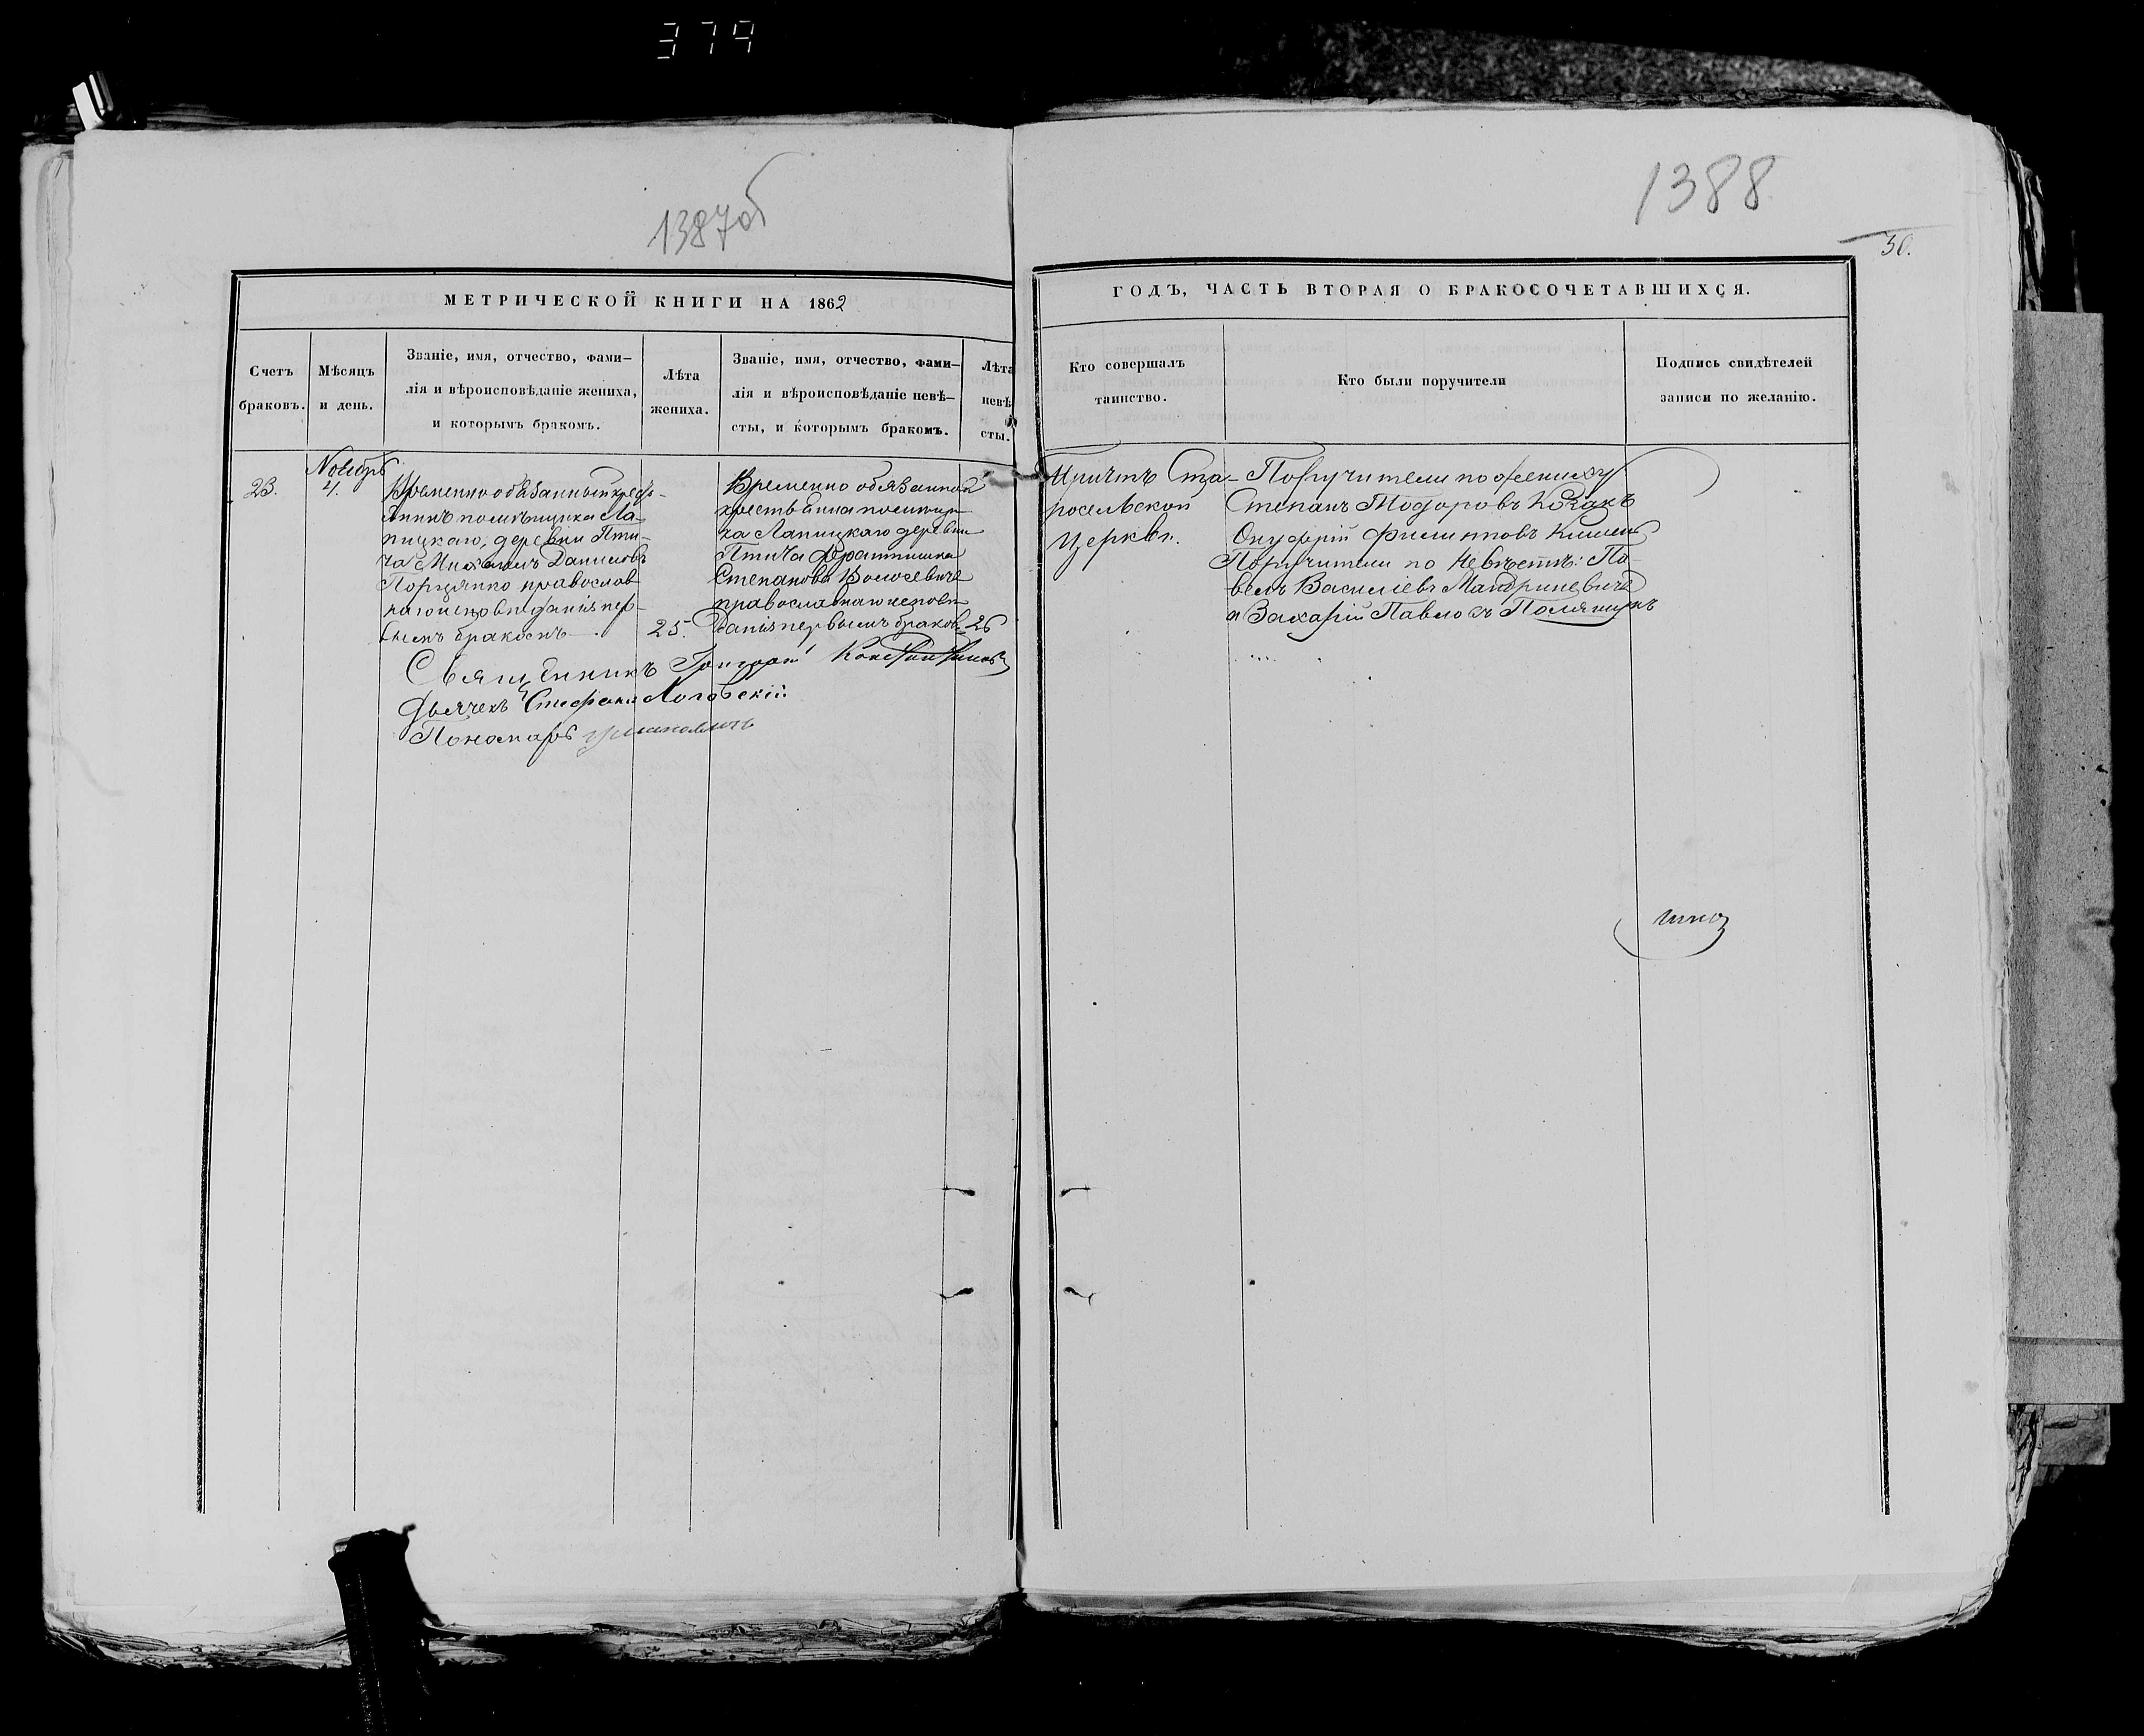 379
1387об
1388
30.
МЕТРИЧЕСКОЙ КНИГИ НА 1862
ГОДЪ, ЧАСТЬ ВТОРАЯ О БРАКОСОЧЕТАВШИХСЯ.
Счетъ
браковъ.
Мѣсяцъ
и день.
Званіе, имя, отчество, фами-
лія и вѣроисповѣданіе жениха,
и которымъ бракомъ.
Лѣта
жениха.
Званіе, имя, отчество, фами-
лія и вѣроисповѣданіе невѣ-
сты, и которымъ бракомъ.
Лѣта
невѣ
сты.
Кто совершалъ
таинство.
Кто были поручители
Подпись свидѣтелей
записи по желанію.
23.
Ноябрь
4.
Временно обязанный кресть-
янинъ помѣщика Ла-
пицкаго, деревни Пти-
ча Михаилъ Даниловъ
православ
наго исповѣданія пер-
вымъ бракомъ
25.
Временно обязанная
крестьянка помѣщи
ка Лапицкаго деревни
Птича
Степанова
православнаго исповѣ
данія первымъ браком
26
Причтъ Ста-
росельской
Церкви.
Поручители по жениху
Степанъ Тодоровъ Козакъ
Онуфрій Филиповъ
Поручители по Невѣстѣ: Па-
велъ Василіевъ Мандриневиче
и Захарій Павловъ
Священникъ Григорій
Дьячекъ Стефанъ
Пономарь